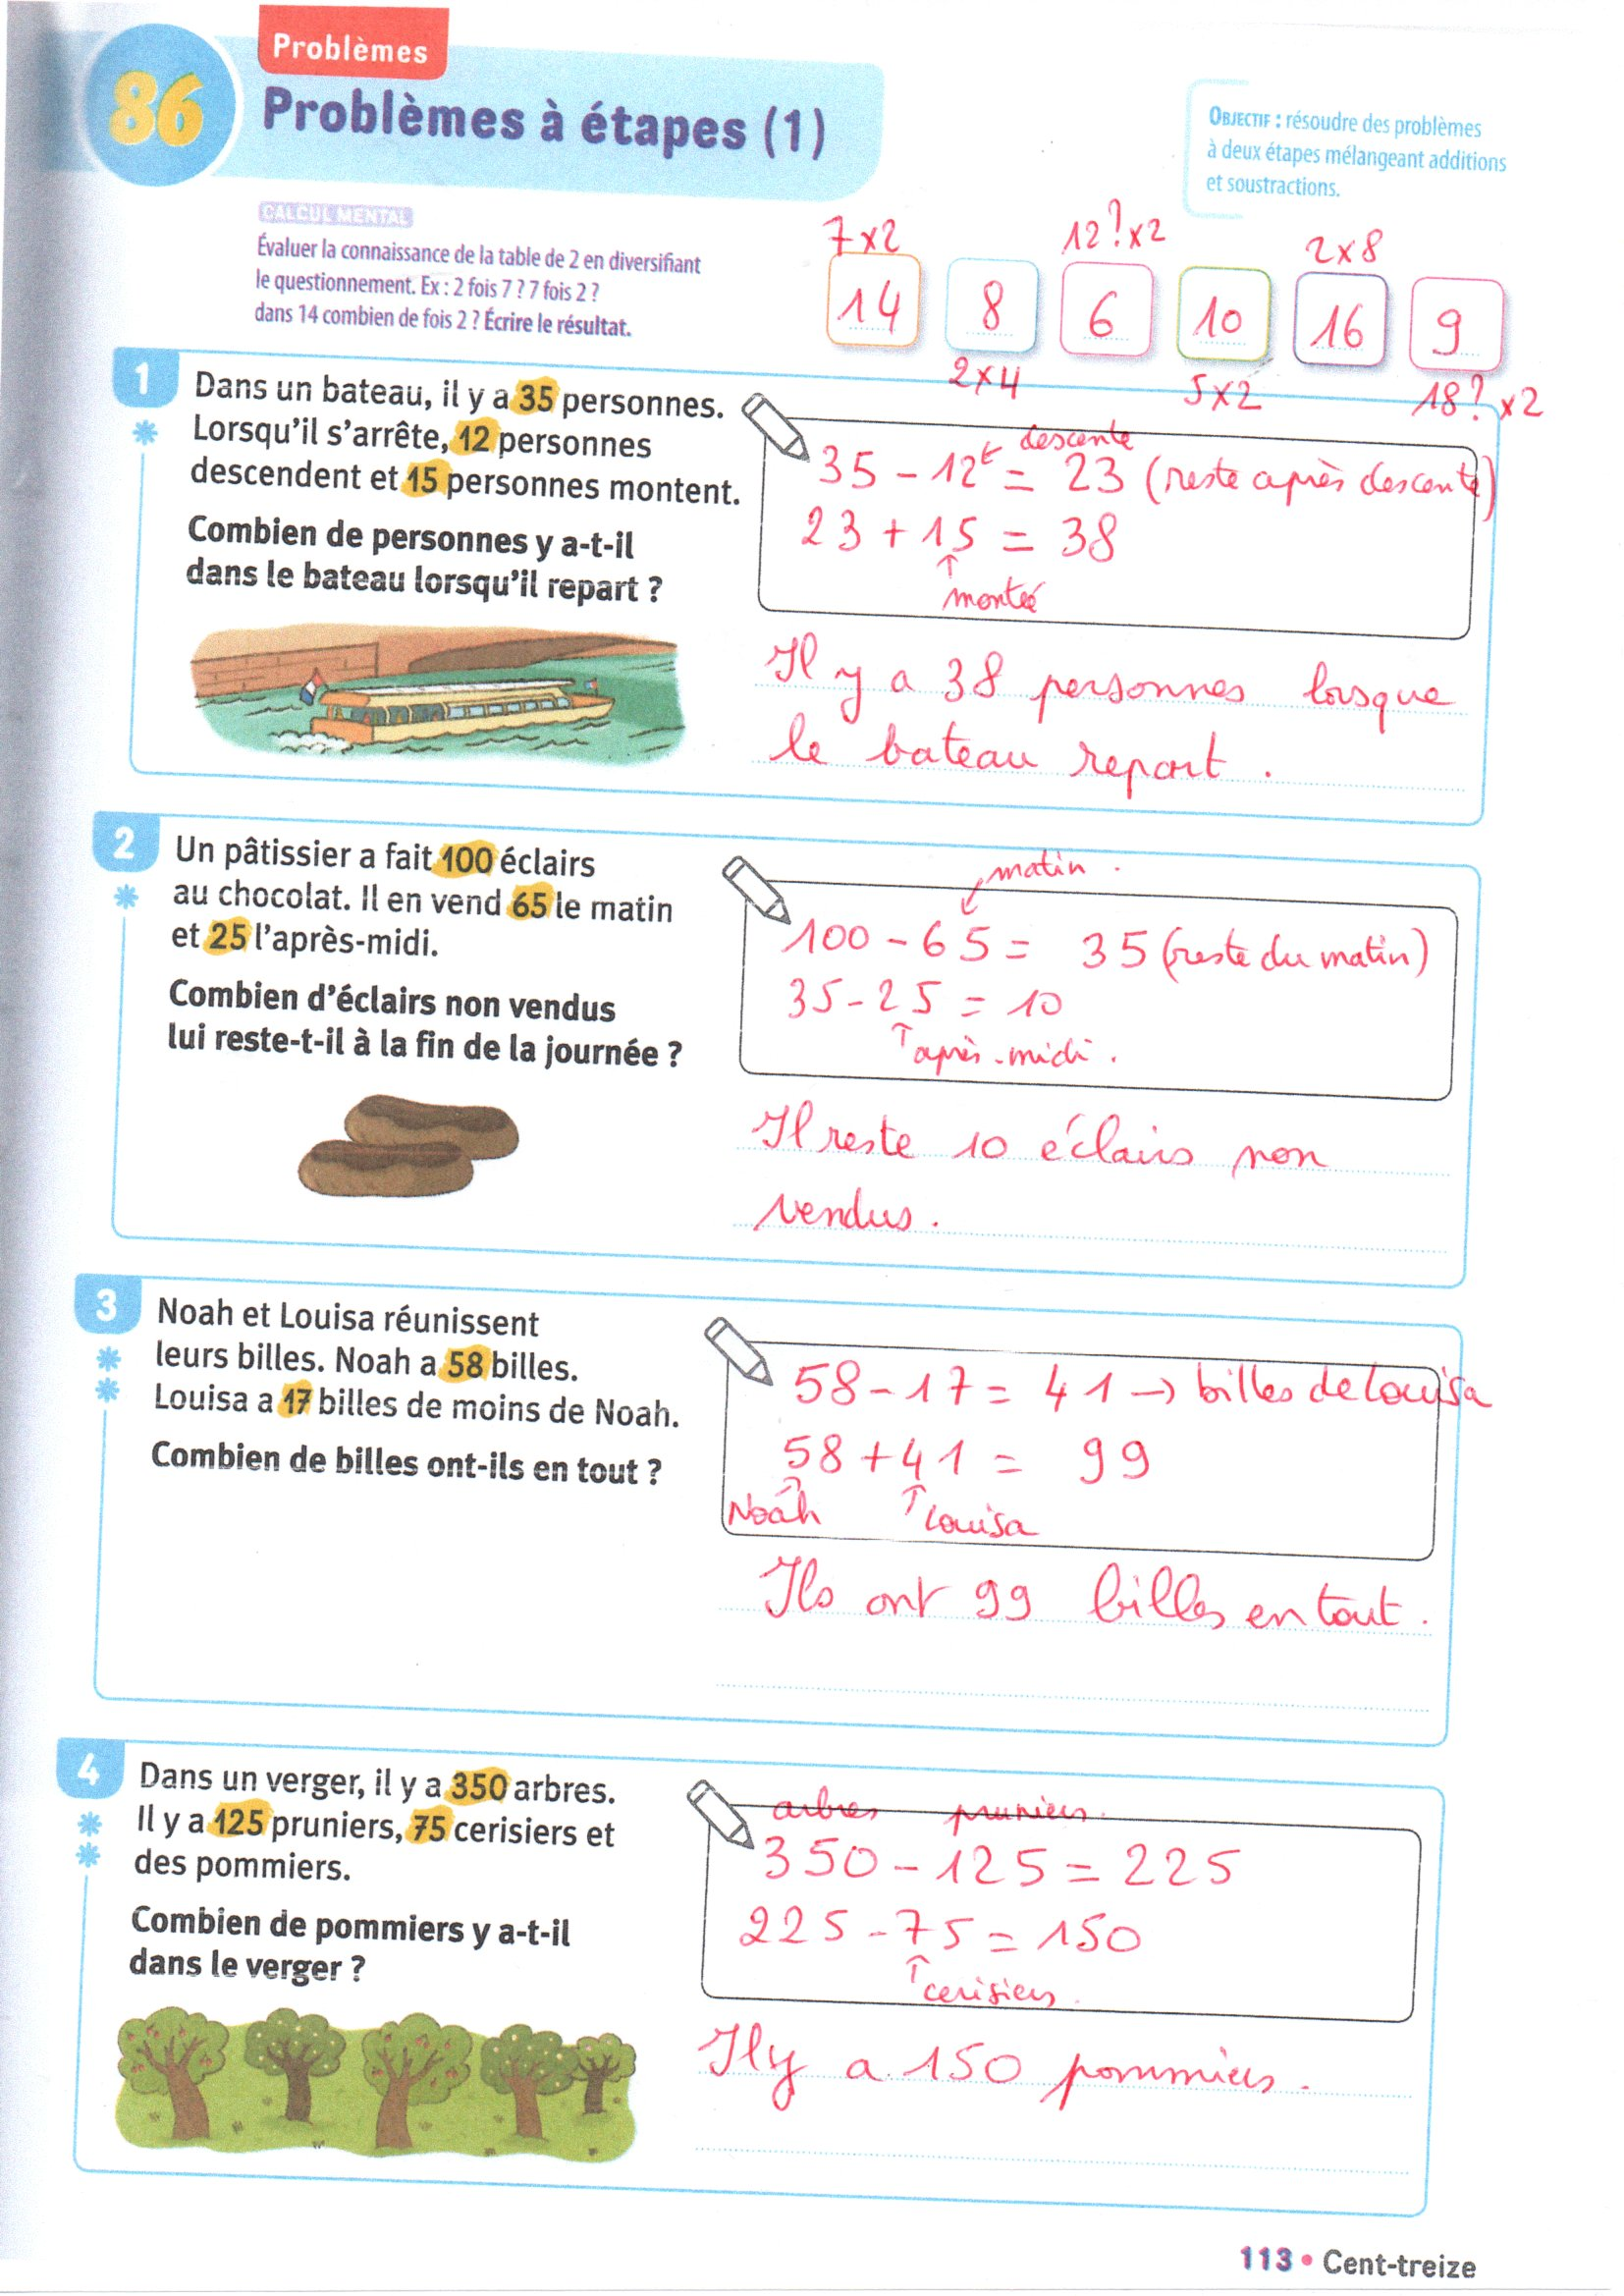 Problèmes
86
Problèmes à étapes (1)
OBJECTIF : résoudre des problèmes
à deux étapes mélangeant additions
et soustractions.
CALCUL MENTAL
Évaluer la connaissance de la table de 2 en diversifiant
le questionnement. Ex : 2 fois 7 ? 7 fois 2 ?
dans 14 combien de fois 2 ? Écrire le résultat.
7x2 12?x2 2x8
14 8 6 10 16 9
2x4 5x2 18?x2
1
Dans un bateau, il y a 35 personnes.
Lorsqu'il s'arrête, 12 personnes
descendent et 15 personnes montent.
Combien de personnes y a-t-il
dans le bateau lorsqu'il repart ?
descente
35 - 12 = 23 (reste après descente)
23 + 15 = 38
↑
montée
Il y a 38 personnes lorsque
le bateau repart.
2
Un pâtissier a fait 100 éclairs
au chocolat. Il en vend 65 le matin
et 25 l'après-midi.
Combien d'éclairs non vendus
lui reste-t-il à la fin de la journée ?
matin.
100 - 65 = 35 (reste du matin)
35 - 25 = 10
↑ après-midi.
Il reste 10 éclairs non
vendus.
3
Noah et Louisa réunissent
leurs billes. Noah a 58 billes.
Louisa a 17 billes de moins de Noah.
Combien de billes ont-ils en tout ?
58 - 17 = 41 → billes de Louisa
58 + 41 = 99
Noah ↑ Louisa
Ils ont 99 billes en tout.
4
Dans un verger, il y a 350 arbres.
Il y a 125 pruniers, 75 cerisiers et
des pommiers.
Combien de pommiers y a-t-il
dans le verger ?
arbres pruniers.
350 - 125 = 225
225 - 75 = 150
↑ cerisiers.
Il y a 150 pommiers.
113 • Cent-treize